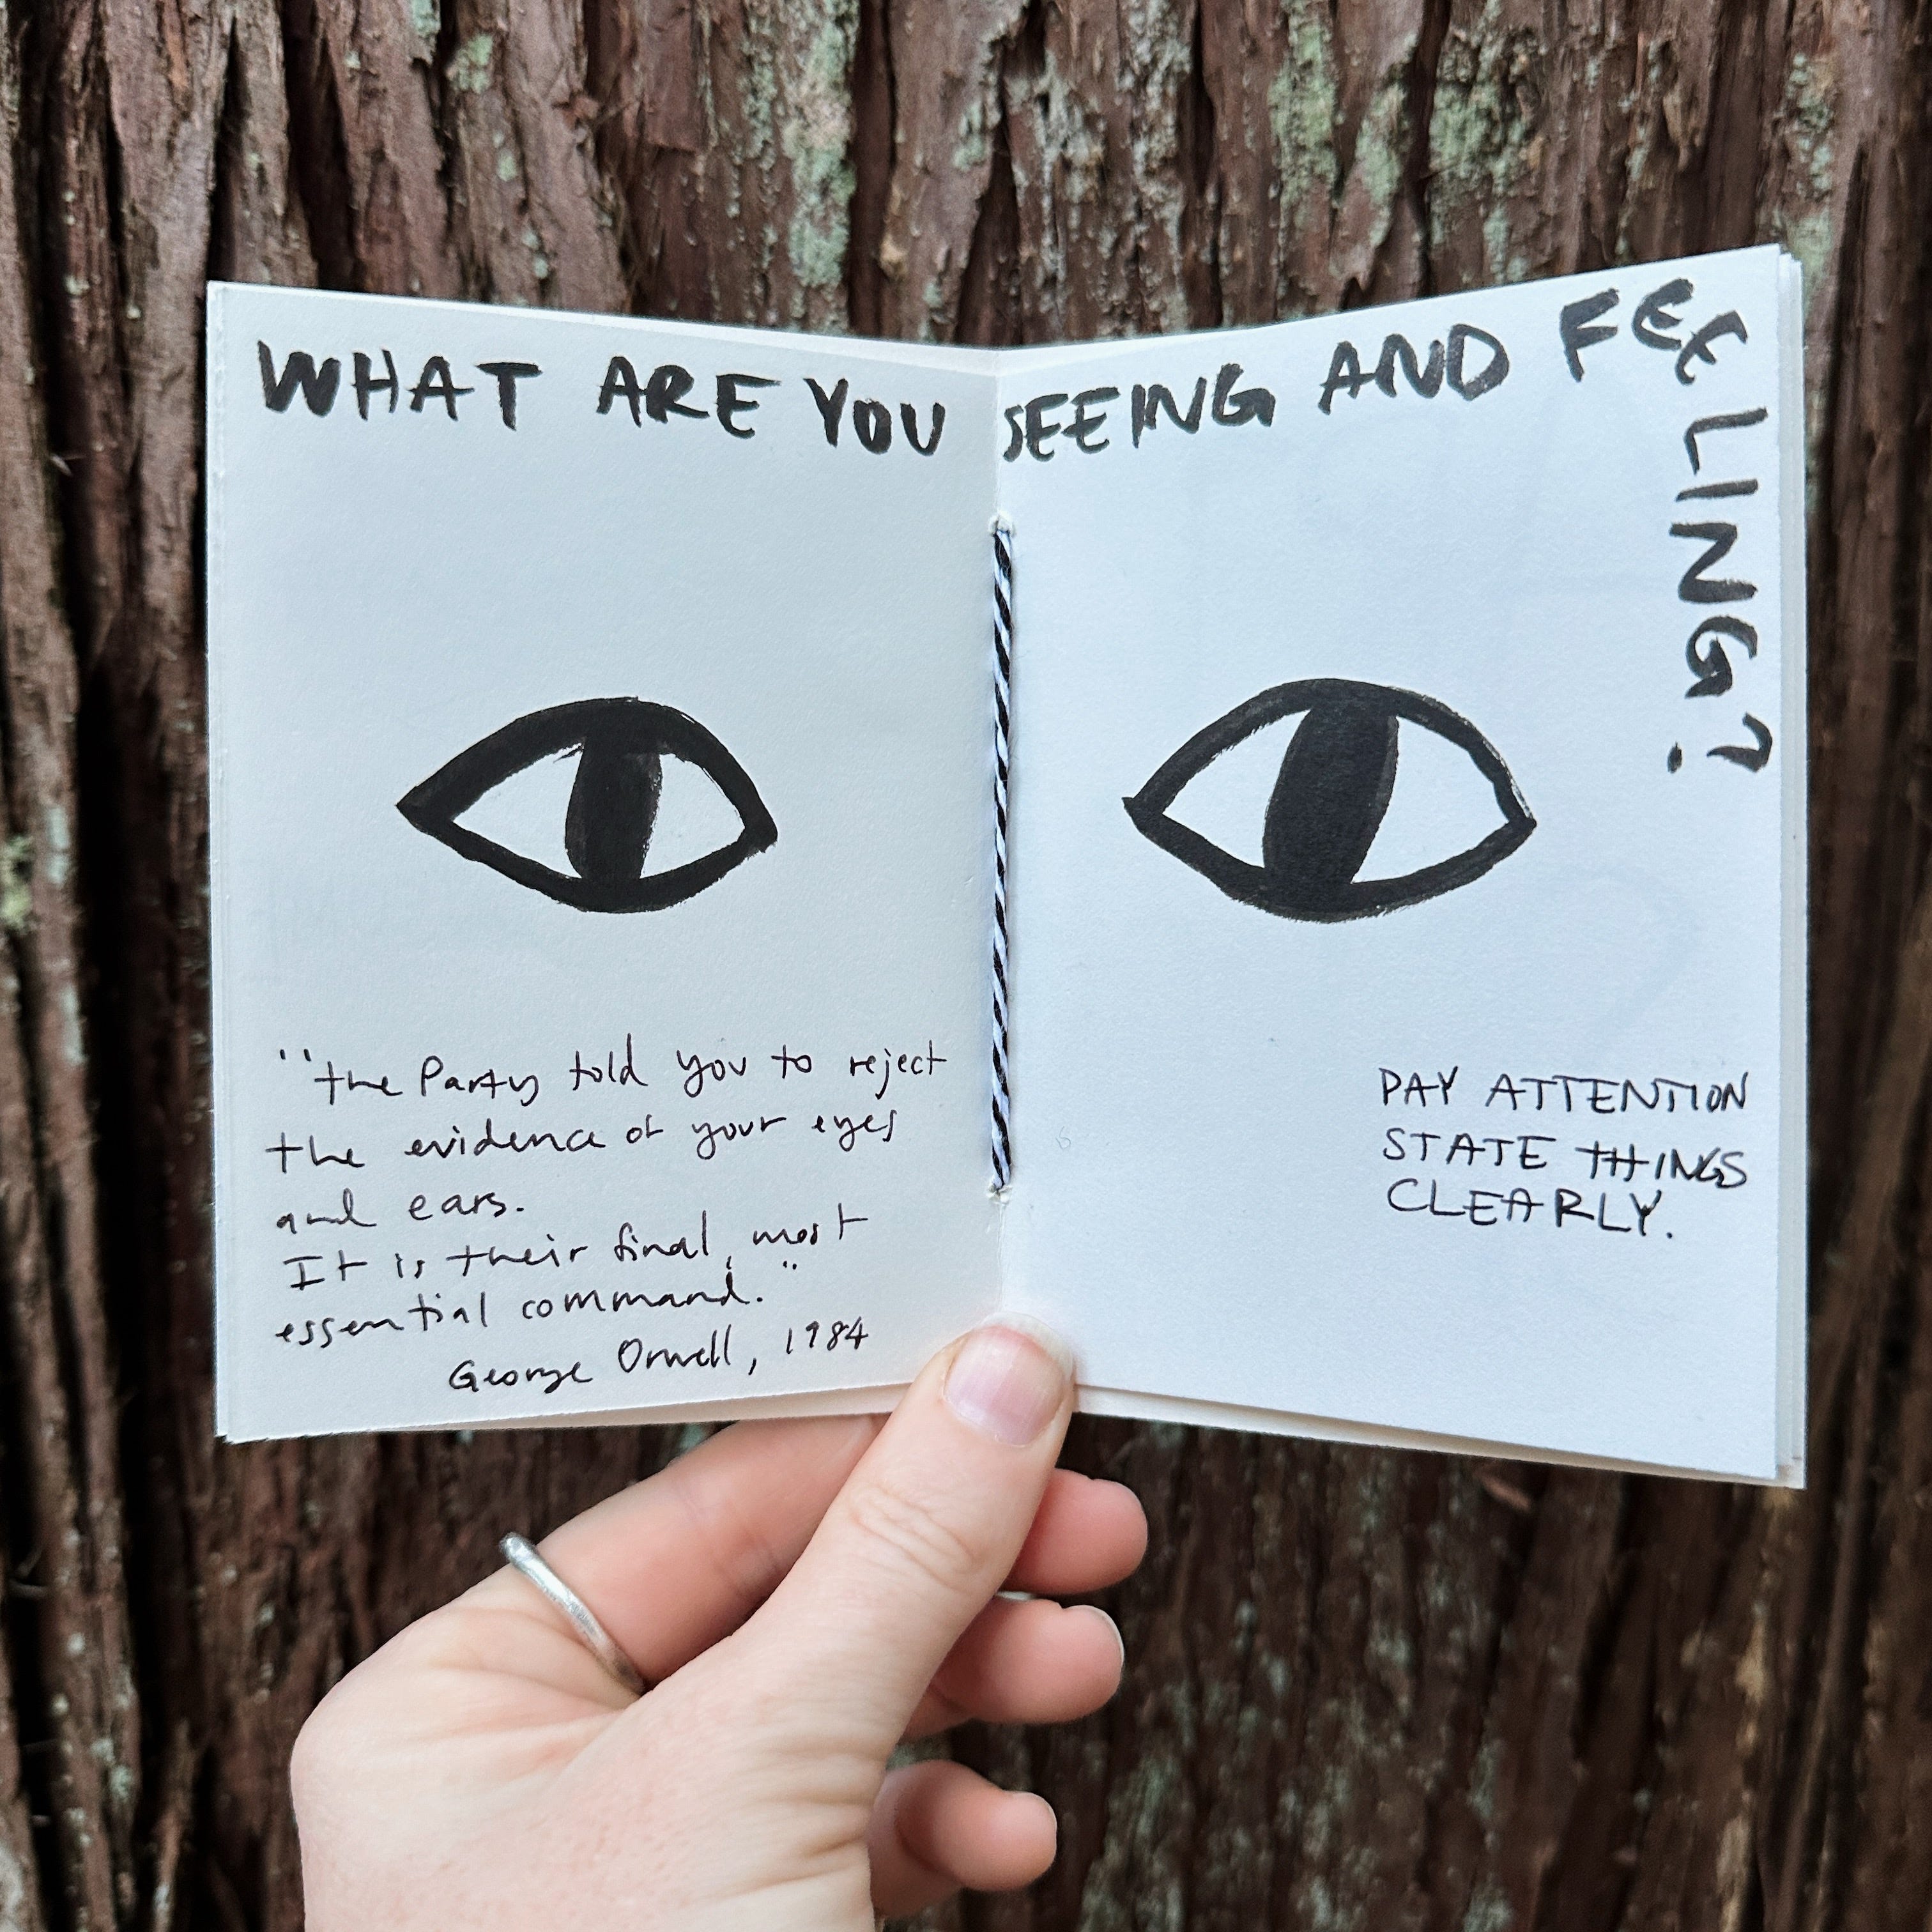 WHAT ARE YOU SEEING AND FEELING?
"the Party told you to reject
the evidence of your eyes
and ears.
It is their final, most
essential command."
George Orwell, 1984
PAY ATTENTION
STATE THINGS
CLEARLY.